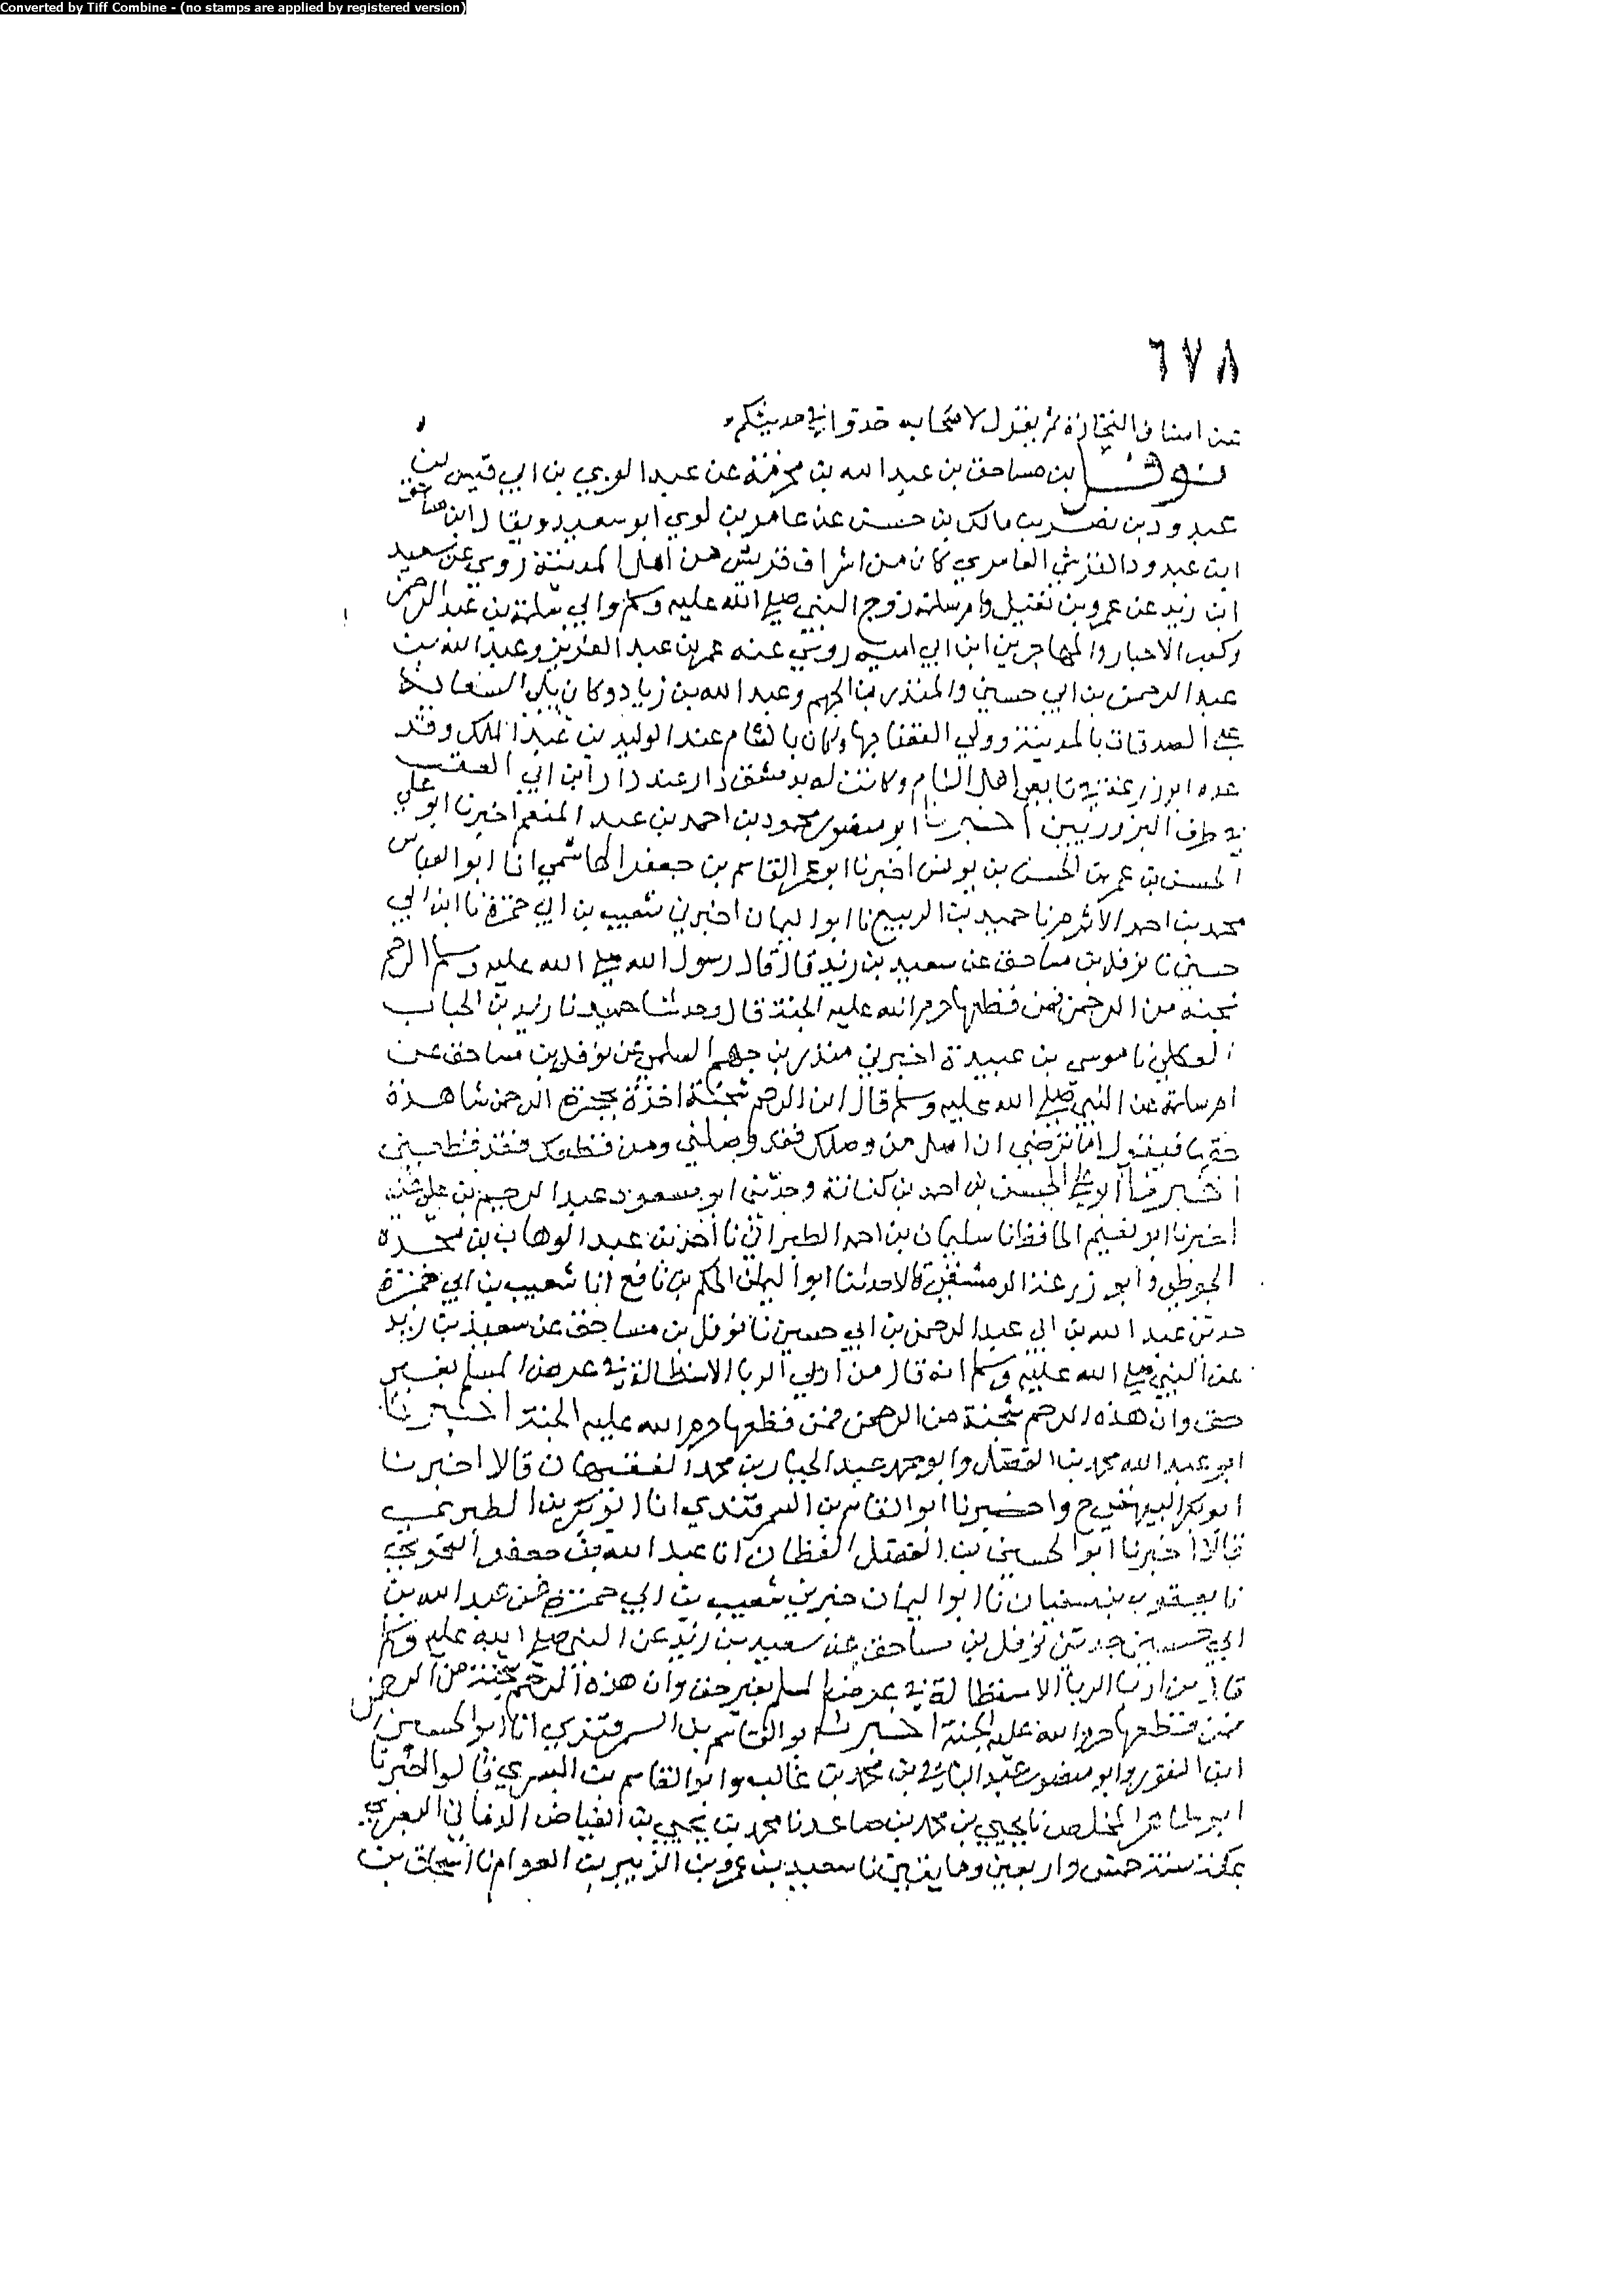 Converted by Tiff Combine - (no stamps are applied by registered version)
٦٧٨
من اسناف التجارة ثم يقول لاصحابه خذوا في حديثكم
نوفل بن مساحق بن عبد الله بن مخرمة عن عبد العزي بن ابي قيس بن
عبد ود بن نصر بن مالك بن حسل عن عامر بن لوي ابو سعيد ويقال ابن مساحق
ابن عبد ود القرشي العامري كان من اشراف قريش من اهل المدينة روي عن سعيد
ابن زيد عن عمرو بن نفيل وام سلمة زوج النبي صلي الله عليه وسلم وابي سلمة بن عبد الرحمن
وكعب الاحبار والمهاجر بن ابن ابي امية روي عنه عمر بن عبد العزيز وعبد الله بن
عبد الرحمن بن ابي حسين والمنذر بن الجهم وعبد الله بن زياد وكان يلي السعاية
علي الصدقات بالمدينة وولي القضا بها وكان بالشام عند الوليد بن عبد الملك وقد
عده ابو زرعة في تابعي اهل الشام وكانت له بدمشق دار عند دار ابن ابي العقب
في طرف البزوريين اخبرنا ابو منصور محمود بن احمد بن عبد المنعم اخبرنا ابو علي
الحسن بن عمر بن الحسن بن يونس اخبرنا ابو عمر القاسم بن جعفر الهاشمي انا ابو العباس
محمد بن احمد الاثرم نا حميد بن الربيع نا ابو اليمان اخبرني شعيب بن ابي حمزة نا ابن ابي
حسين نا نوفل بن مساحق عن سعيد بن زيد قال قال رسول الله صلي الله عليه وسلم الرحم
شجنة من الرحمن فمن قطعها حرم الله عليه الجنة قال وحدثنا حميد نا زيد بن الحباب
العكلي نا موسى بن عبيدة اخبرني منذر بن جهم السلمي عن نوفل بن مساحق عن
ام سلمة عن النبي صلي الله عليه وسلم قال ان الرحم شجنة اخذة بحجزة الرحمن شاهدة
فيقول اما ترضي ان اصل من وصلك فقد وصلني ومن قطعك فقد قطعني
اخبرنا ابو علي الحسن بن احمد بن كتابة وحدثني ابو مسعود عبد الرحيم بن علي عنه
اخبرنا ابو نعيم الحافظ انا سليمان بن احمد الطبراني نا احمد بن عبد الوهاب بن نجدة
الحوطي وابو زرعة الدمشقي قالا حدثنا ابو اليمان الحكم بن نافع انا شعيب بن ابي حمزة
حدثني عبد الله بن ابي عبد الرحمن بن ابي حسين نا نوفل بن مساحق عن سعيد بن زيد
عن النبي صلي الله عليه وسلم انه قال من اربي الربا الاستطالة في عرض المسلم بغير
حق وان هذه الرحم شجنة من الرحمن فمن قطعها حرم الله عليه الجنة اخبرنا
ابو عبد الله محمد بن الفضل وابو محمد عبد الجبار بن محمد الفقيهان قالا اخبرنا
ابو بكر البيهقي ح واخبرنا ابو القاسم بن السمرقندي انا ابو بكر بن الطبري
قالا اخبرنا ابو الحسين بن الفضل القطان انا عبد الله بن جعفر النحوي
نا يعقوب بن سفيان نا ابو اليمان خبرني شعيب بن ابي حمزة عن عبد الله بن
ابي حسين حدثني نوفل بن مساحق عن سعيد بن زيد عن النبي صلي الله عليه وسلم
قال من اربا الربا الاستطالة في عرض المسلم بغير حق وان هذه الرحم شجنة من الرحمن
فمن قطعها حرم الله عليه الجنة اخبرنا ابو القاسم بن السمرقندي انا ابو الحسين
ابن النقور وابو منصور عبد الباقي بن محمد بن غالب وابو القاسم بن البسري قالوا اخبرنا
ابو طاهر المخلص نا يحيي بن محمد بن صاعد نا محمد بن يحيي بن الفياض الزماني البصري
بمكة سنة خمس واربعين ومايتين نا سعيد بن عمرو بن الزبير بن العوام نا اسحاق بن